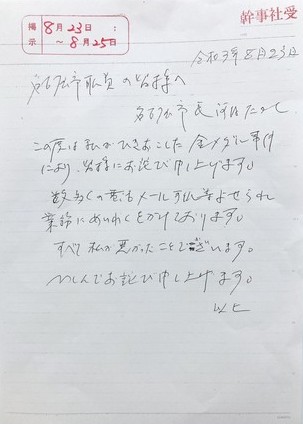 幹事社受
掲示 8月23日 :
~ 8月25日
令和3年8月23日
名古屋市職員の皆様へ
名古屋市長 河村たかし
この度は私がひきおこした金メダル事件
により、皆様にお詫び申し上げます。
数多くの苦情メール
業務にめいわくをかけております。
すべて私が悪かったことでございます。
つつしんでお詫び申し上げます。
以上